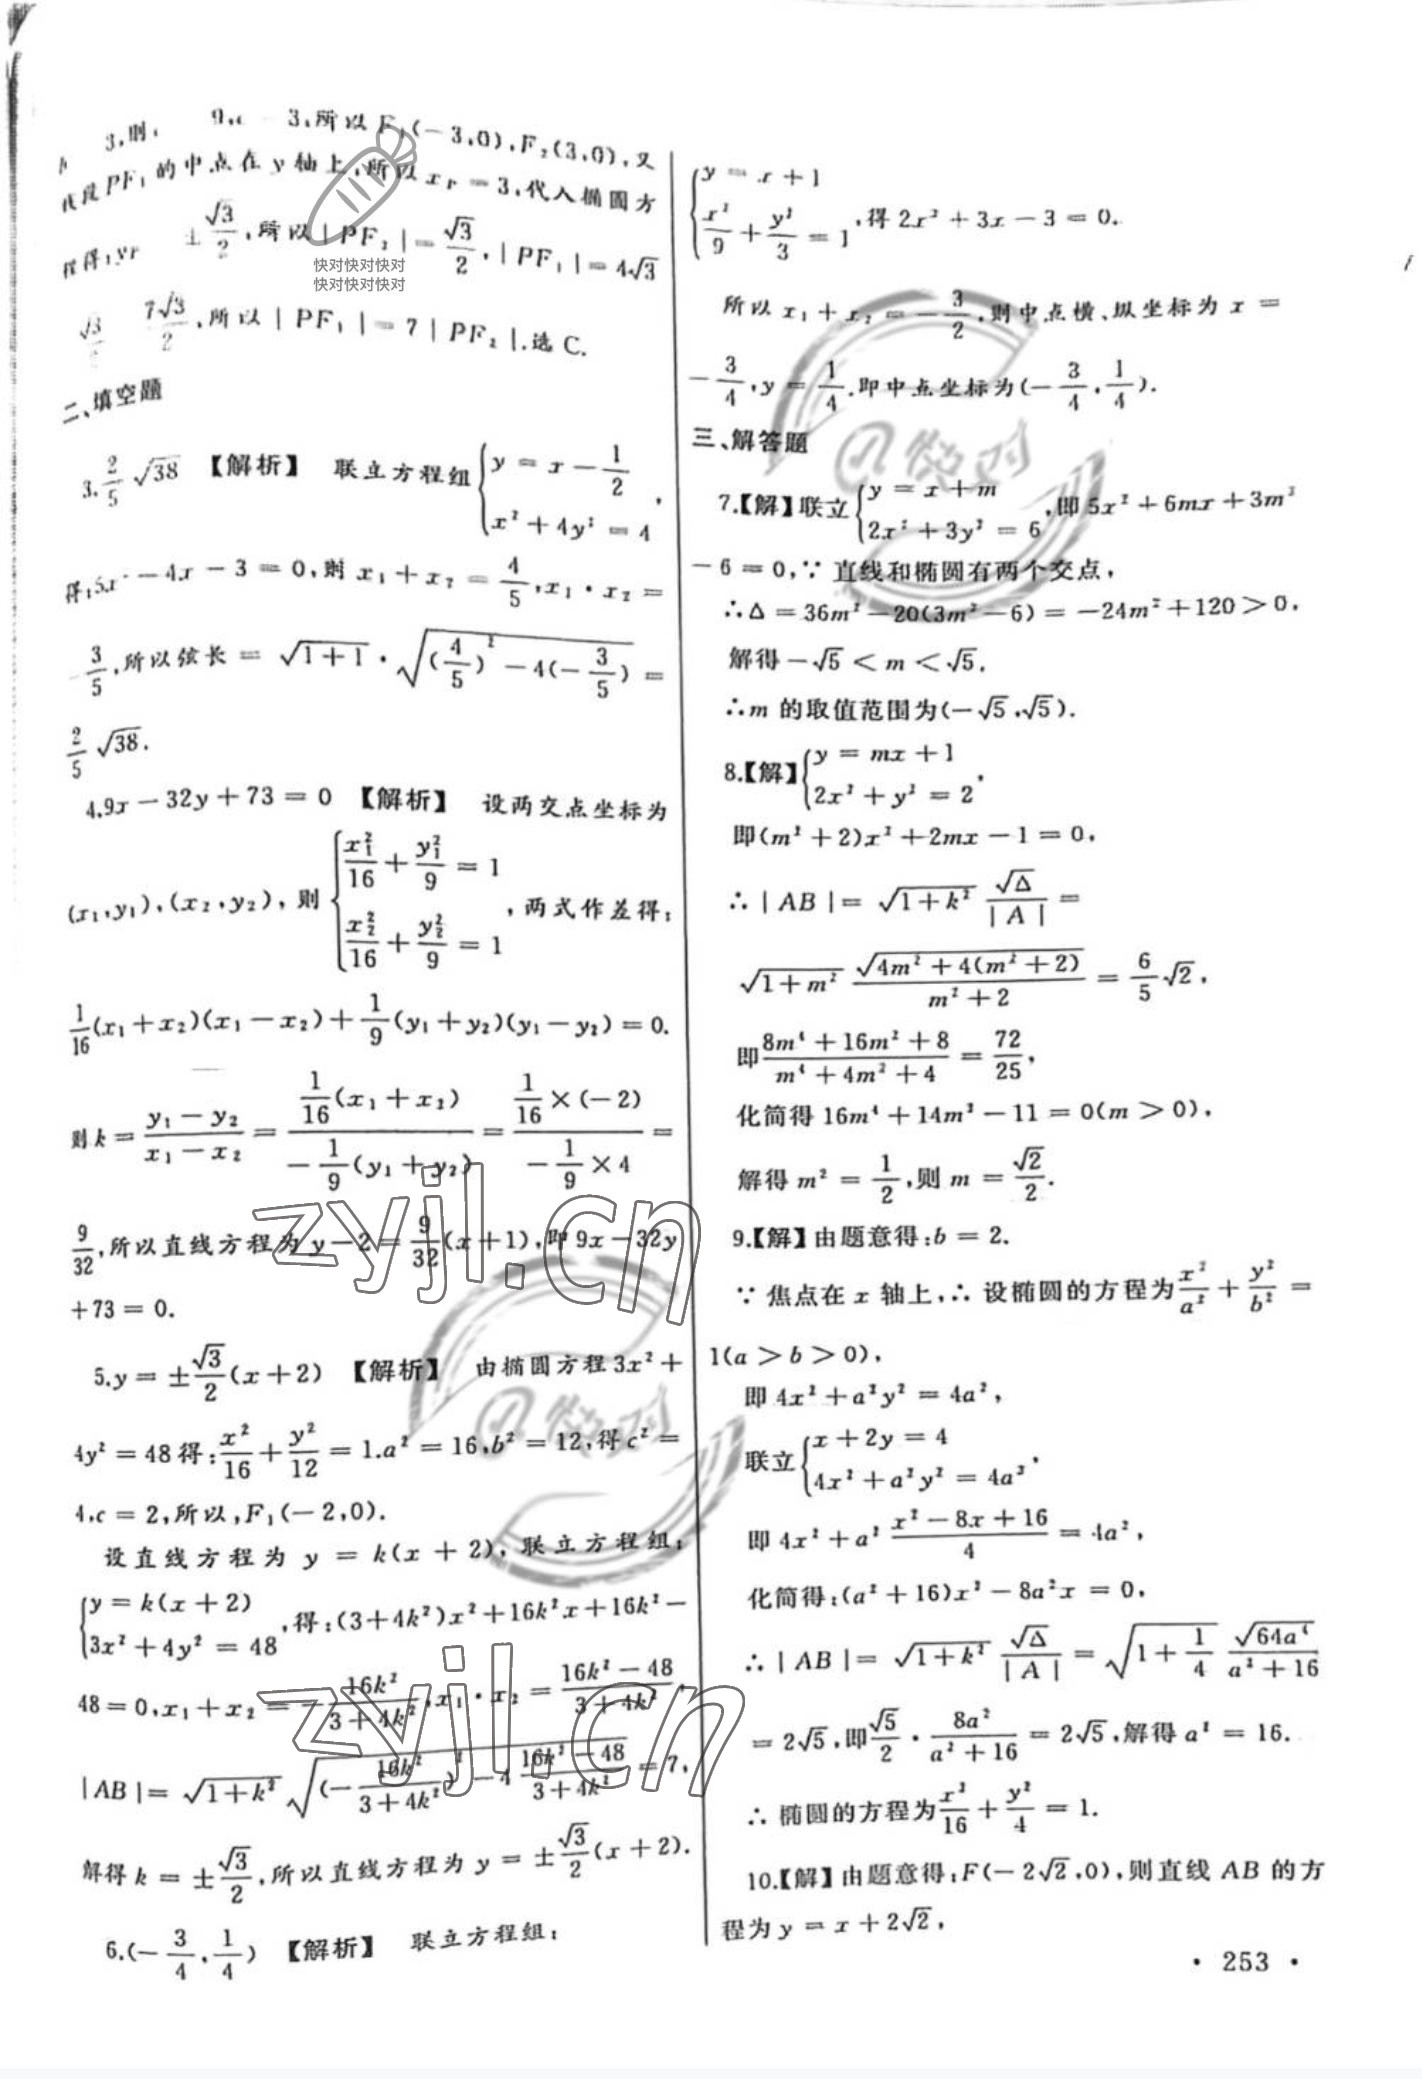 3,则 9, 3,所以F₁(-3,0),F₂(3,0),又
线段PF₁的中点在y轴上,所以x_P=3,代入椭圆方
程得:y_P ±√3/2,所以|PF₂|=√3/2,|PF₁|=4√3
√3 7√3/2,所以|PF₁|=7|PF₂|.选C.
二、填空题
3. 2/5 √38 【解析】 联立方程组{y=x-1/2, x²+4y²=4,
得:5x²-4x-3=0,则x₁+x₂=4/5,x₁·x₂=
-3/5,所以弦长=√(1+1)·√((4/5)²-4(-3/5))=
2/5 √38.
4.9x-32y+73=0 【解析】 设两交点坐标为
(x₁,y₁),(x₂,y₂),则{x₁²/16+y₁²/9=1, x₂²/16+y₂²/9=1,两式作差得:
1/16(x₁+x₂)(x₁-x₂)+1/9(y₁+y₂)(y₁-y₂)=0.
则k=(y₁-y₂)/(x₁-x₂)=(1/16(x₁+x₂))/(-1/9(y₁+y₂))=(1/16×(-2))/(-1/9×4)=
9/32,所以直线方程为y-2=9/32(x+1),即9x-32y
+73=0.
5.y=±√3/2(x+2) 【解析】 由椭圆方程3x²+
4y²=48得:x²/16+y²/12=1.a²=16,b²=12,得c²=
4,c=2,所以,F₁(-2,0).
设直线方程为y=k(x+2),联立方程组:
{y=k(x+2), 3x²+4y²=48,得:(3+4k²)x²+16k²x+16k²-
48=0,x₁+x₂=-16k²/(3+4k²),x₁·x₂=(16k²-48)/(3+4k²),
|AB|=√(1+k²)√((-16k²/(3+4k²))²-4(16k²-48)/(3+4k²))=7,
解得k=±√3/2,所以直线方程为y=±√3/2(x+2).
6.(-3/4,1/4) 【解析】 联立方程组:
{y=x+1, x²/9+y²/3=1,得2x²+3x-3=0.
所以x₁+x₂=-3/2,则中点横、纵坐标为x=
-3/4,y=1/4.即中点坐标为(-3/4,1/4).
三、解答题
7.【解】联立{y=x+m, 2x²+3y²=6,即5x²+6mx+3m²
-6=0,∵直线和椭圆有两个交点,
∴Δ=36m²-20(3m²-6)=-24m²+120>0,
解得-√5<m<√5.
∴m的取值范围为(-√5,√5).
8.【解】{y=mx+1, 2x²+y²=2,
即(m²+2)x²+2mx-1=0,
∴|AB|=√(1+k²) √Δ/|A|=
√(1+m²) √(4m²+4(m²+2))/(m²+2)=6/5 √2,
即(8m⁴+16m²+8)/(m⁴+4m²+4)=72/25,
化简得16m⁴+14m²-11=0(m>0),
解得m²=1/2,则m=√2/2.
9.【解】由题意得:b=2.
∵焦点在x轴上,∴设椭圆的方程为x²/a²+y²/b²=
1(a>b>0),
即4x²+a²y²=4a²,
联立{x+2y=4, 4x²+a²y²=4a²,
即4x²+a²(x²-8x+16)/4=4a²,
化简得:(a²+16)x²-8a²x=0,
∴|AB|=√(1+k²) √Δ/|A|=√(1+1/4) √(64a⁴)/(a²+16)
=2√5,即√5/2·8a²/(a²+16)=2√5,解得a²=16.
∴椭圆的方程为x²/16+y²/4=1.
10.【解】由题意得:F(-2√2,0),则直线AB的方
程为y=x+2√2,
· 253 ·
快对快对快对
快对快对快对
快对
zyjl.cn
快对
zyjl.cn